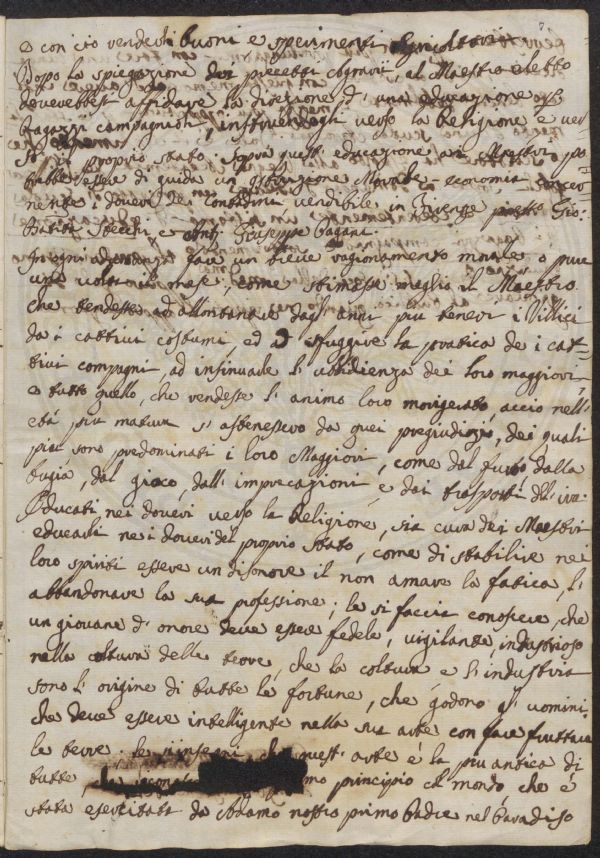 e con ciò renderli buoni e sperimenti Agricoltori
Dopo la spiegazione dei precetti Agrarii, al Maestro eletto
doverebbesi affidare la direzione d' una educazione a'
Ragazzi campagnoli, instruendogli verso la Religione e ver-
so il proprio stato. Sopra quest' educazione ai Maestri po-
trebbe essere di guida un' Istruzione Morale-economica concer-
nente i doveri dei Contadini vendibile in Firenze presso Gio:
Batista Stecchi, e Ant: Giuseppe Pagani.
In ogni adunanza fare un breve ragionamento morale o pure
una volta il mese, come stimasse meglio il Maestro
che tendesse ad allontanare dagl' anni più teneri i Villici
da i cattivi costumi, ed a sfuggire la pratica de i cat-
tivi compagni, ad insinuarle l' ubbidienza dei loro maggiori,
e tutto quello, che rendesse l' animo loro morigerato, acciò nell'
età più matura s' astenessero da quei pregiudizj, dei quali
più sono predominati i loro Maggiori, come dal furto, dalla
bugia, dal gioco, dall' imprecazioni e dai trasporti dell' ira.
Educati nei doveri verso la Religione, sia cura dei Maestri
educarli nei doveri del proprio stato, come di stabilire nei
loro spiriti essere un disonore il non amare la fatica, l'
abbandonare la sua professione; le si faccia conoscere, che
un giovane d' onore deve essere fedele, vigilante, industrioso
nella coltura delle terre, che la coltura e l' industria
sono l' origine di tutte le fortune, che godono gl' uomini
che deve essere intelligente nella sua arte con fare fruttare
le terre. le s' insegni che quest' arte è la più antica di
tutte, primo principio del mondo, che è
stata esercitata da Adamo nostro primo Padre nel Paradiso